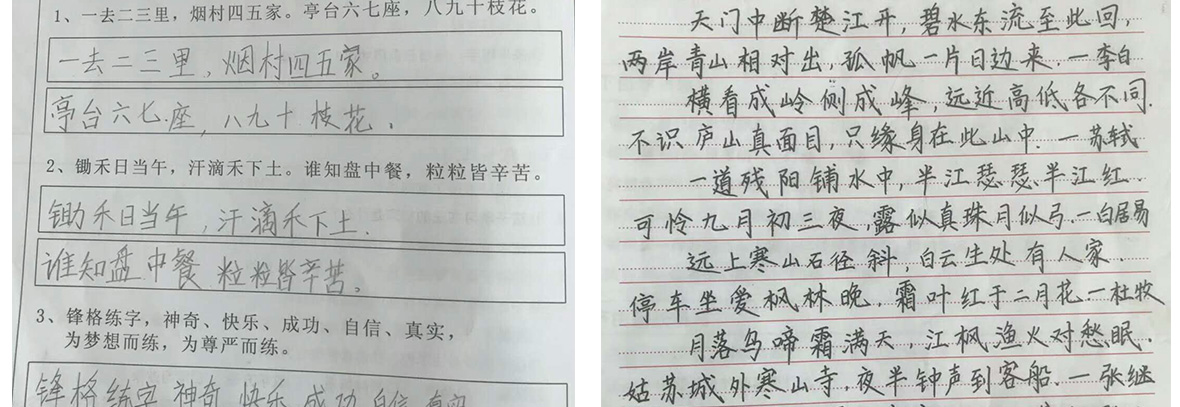 1、一去二三里，烟村四五家。亭台六七座，八九十枝花。
一去二三里，烟村四五家。
亭台六七座，八九十枝花.
2、锄禾日当午，汗滴禾下土。谁知盘中餐，粒粒皆辛苦。
锄禾日当午，汗滴禾下土.
谁知盘中餐 粒粒皆辛苦。
3、锋格练字，神奇、快乐、成功、自信、真实，
为梦想而练，为尊严而练。
锋格练字 神奇 快乐 成功 自信 真实
天门中断楚江开，碧水东流至此回，
两岸青山相对出，孤帆一片日边来.一李白
横看成岭侧成峰，远近高低各不同.
不识庐山真面目，只缘身在此山中.一苏轼
一道残阳铺水中，半江瑟瑟半江红.
可怜九月初三夜，露似真珠月似弓.一白居易
远上寒山石径斜，白云生处有人家.
停车坐爱枫林晚，霜叶红于二月花.一杜牧
月落乌啼霜满天，江枫渔火对愁眠.
姑苏城外寒山寺，夜半钟声到客船.一张继